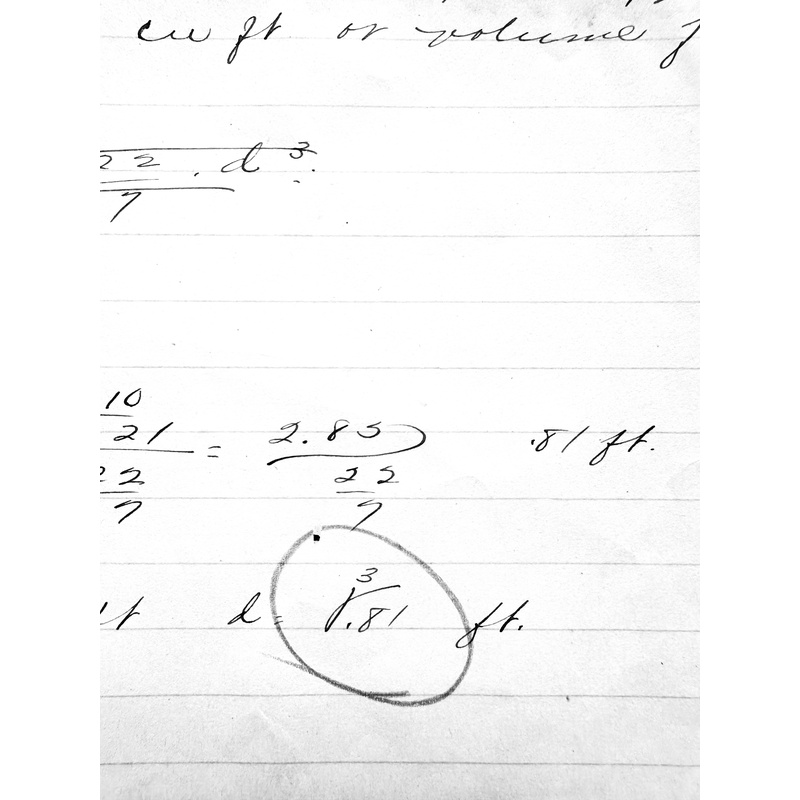 cu ft or volume
22 . d 3.
7
10
21
22
7
= 2.85
22
7
.81 ft.
d = ∛.81 ft.